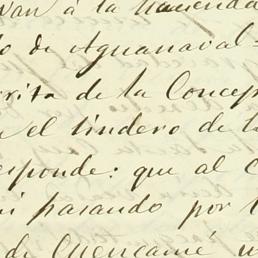 van á la Hacienda
o de Aguanaval=
rita de la Concep
el lindero de l
esponde: que al c
i pasando por l
de Cuencamé